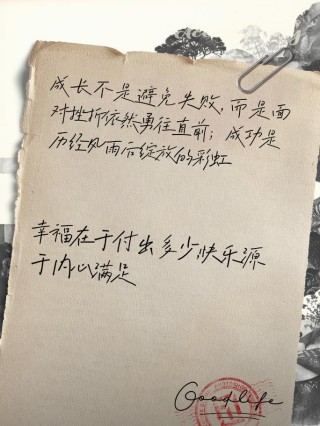 成长不是避免失败,而是面
对挫折依然勇往直前;成功是
历经风雨后绽放的彩虹
幸福在于付出多少快乐源
于内心满足
Goodlife